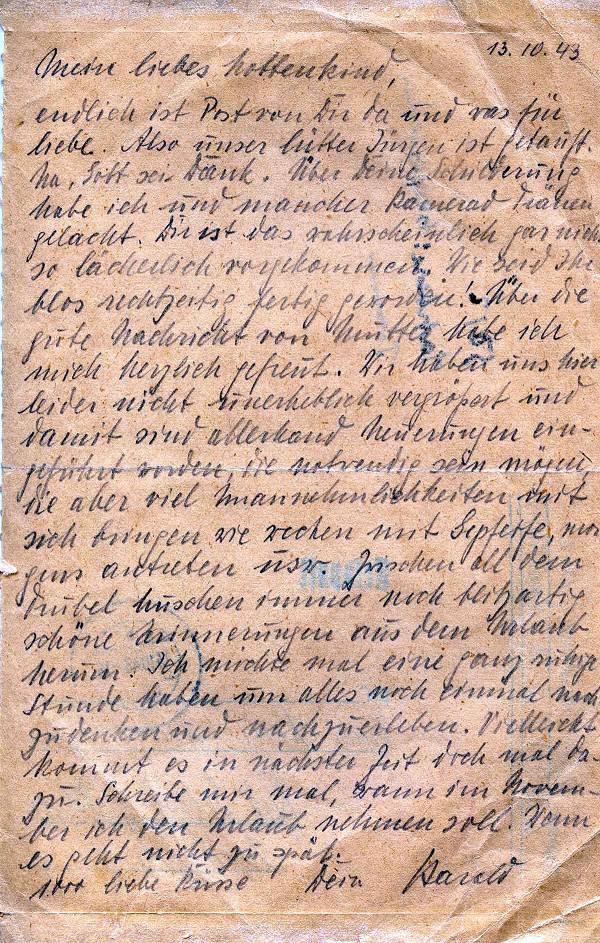 13. 10. 43
Mein liebes Mottenkind,
endlich ist Post von Dir da und was für
liebe. Also unser lütter Jürgen ist getauft.
Na, Gott sei Dank. Über Deine Schilderung
habe ich und mancher Kamerad Tränen
gelacht. Dir ist das wahrscheinlich gar nicht
so lächerlich vorgekommen. Wie seid Ihr
blos rechtzeitig fertig geworden! Über die
gute Nachricht von Mutter habe ich
mich herzlich gefreut. Wir haben uns hier
leider nicht unerheblich vergrößert und
damit sind allerhand Neuerungen ein-
geführt worden, die notwendig sein mögen,
die aber viel Unannehmlichkeiten mit
sich bringen wie wecken mit Gepfeife, mor
gens antreten usw. Zwischen all dem
Trubel huschen immer noch blitzartig
schöne Erinnerungen aus dem Urlaub
herum. Ich möchte mal eine ganz ruhige
Stunde haben um alles noch einmal nach
zudenken und nachzuerleben. Vielleicht
kommt es in nächster Zeit doch mal da-
zu. Schreibe mir mal, wann im Novem-
ber ich den Urlaub nehmen soll. Wenn
es geht nicht zu spät.
1000 liebe Küsse Dein Harald